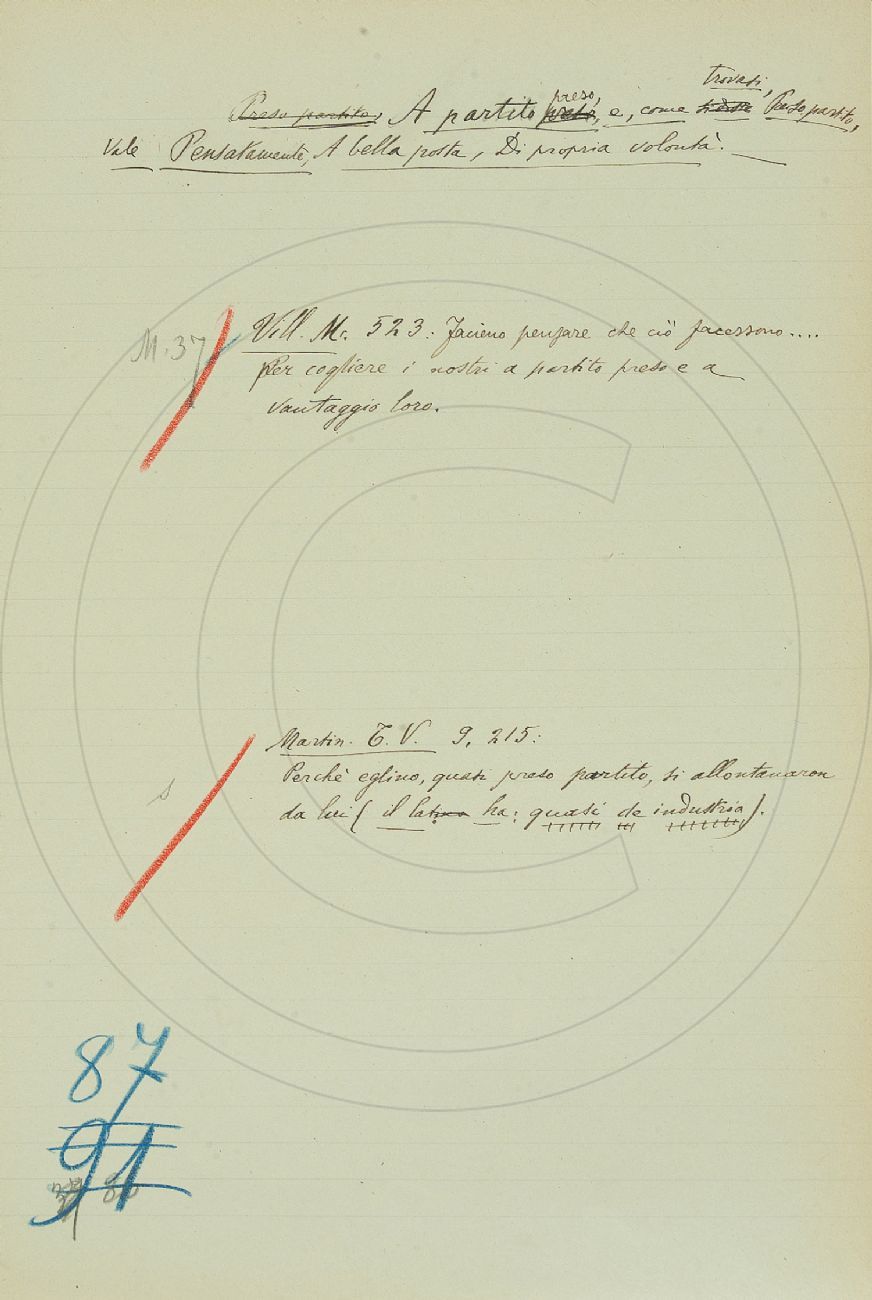 trovasi,
Preso partito, A partito preso, e, come si dice Preso partito,
Vale Pensatamente, A bella posta, Di propria volontà.
M. 37
Vill. M. 523: Facieno pensare che ciò facessono....
Per cogliere i nostri a partito preso e a
vantaggio loro.
Martin. T. V. 9, 215:
Perchè eglino, quasi preso partito, si allontanaron
s
da lui (il latino ha: quasi de industria).
87
91